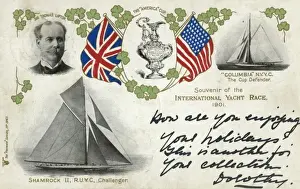 THE "AMERICA" CUP
"COLUMBIA" N.Y.Y.C.
The Cup Defender.
Souvenir of the
INTERNATIONAL YACHT RACE.
1901.
SHAMROCK II, R.U.Y.C. Challenger.
How are you enjoying
your holidays
This is another for
your collection
Dorothy.